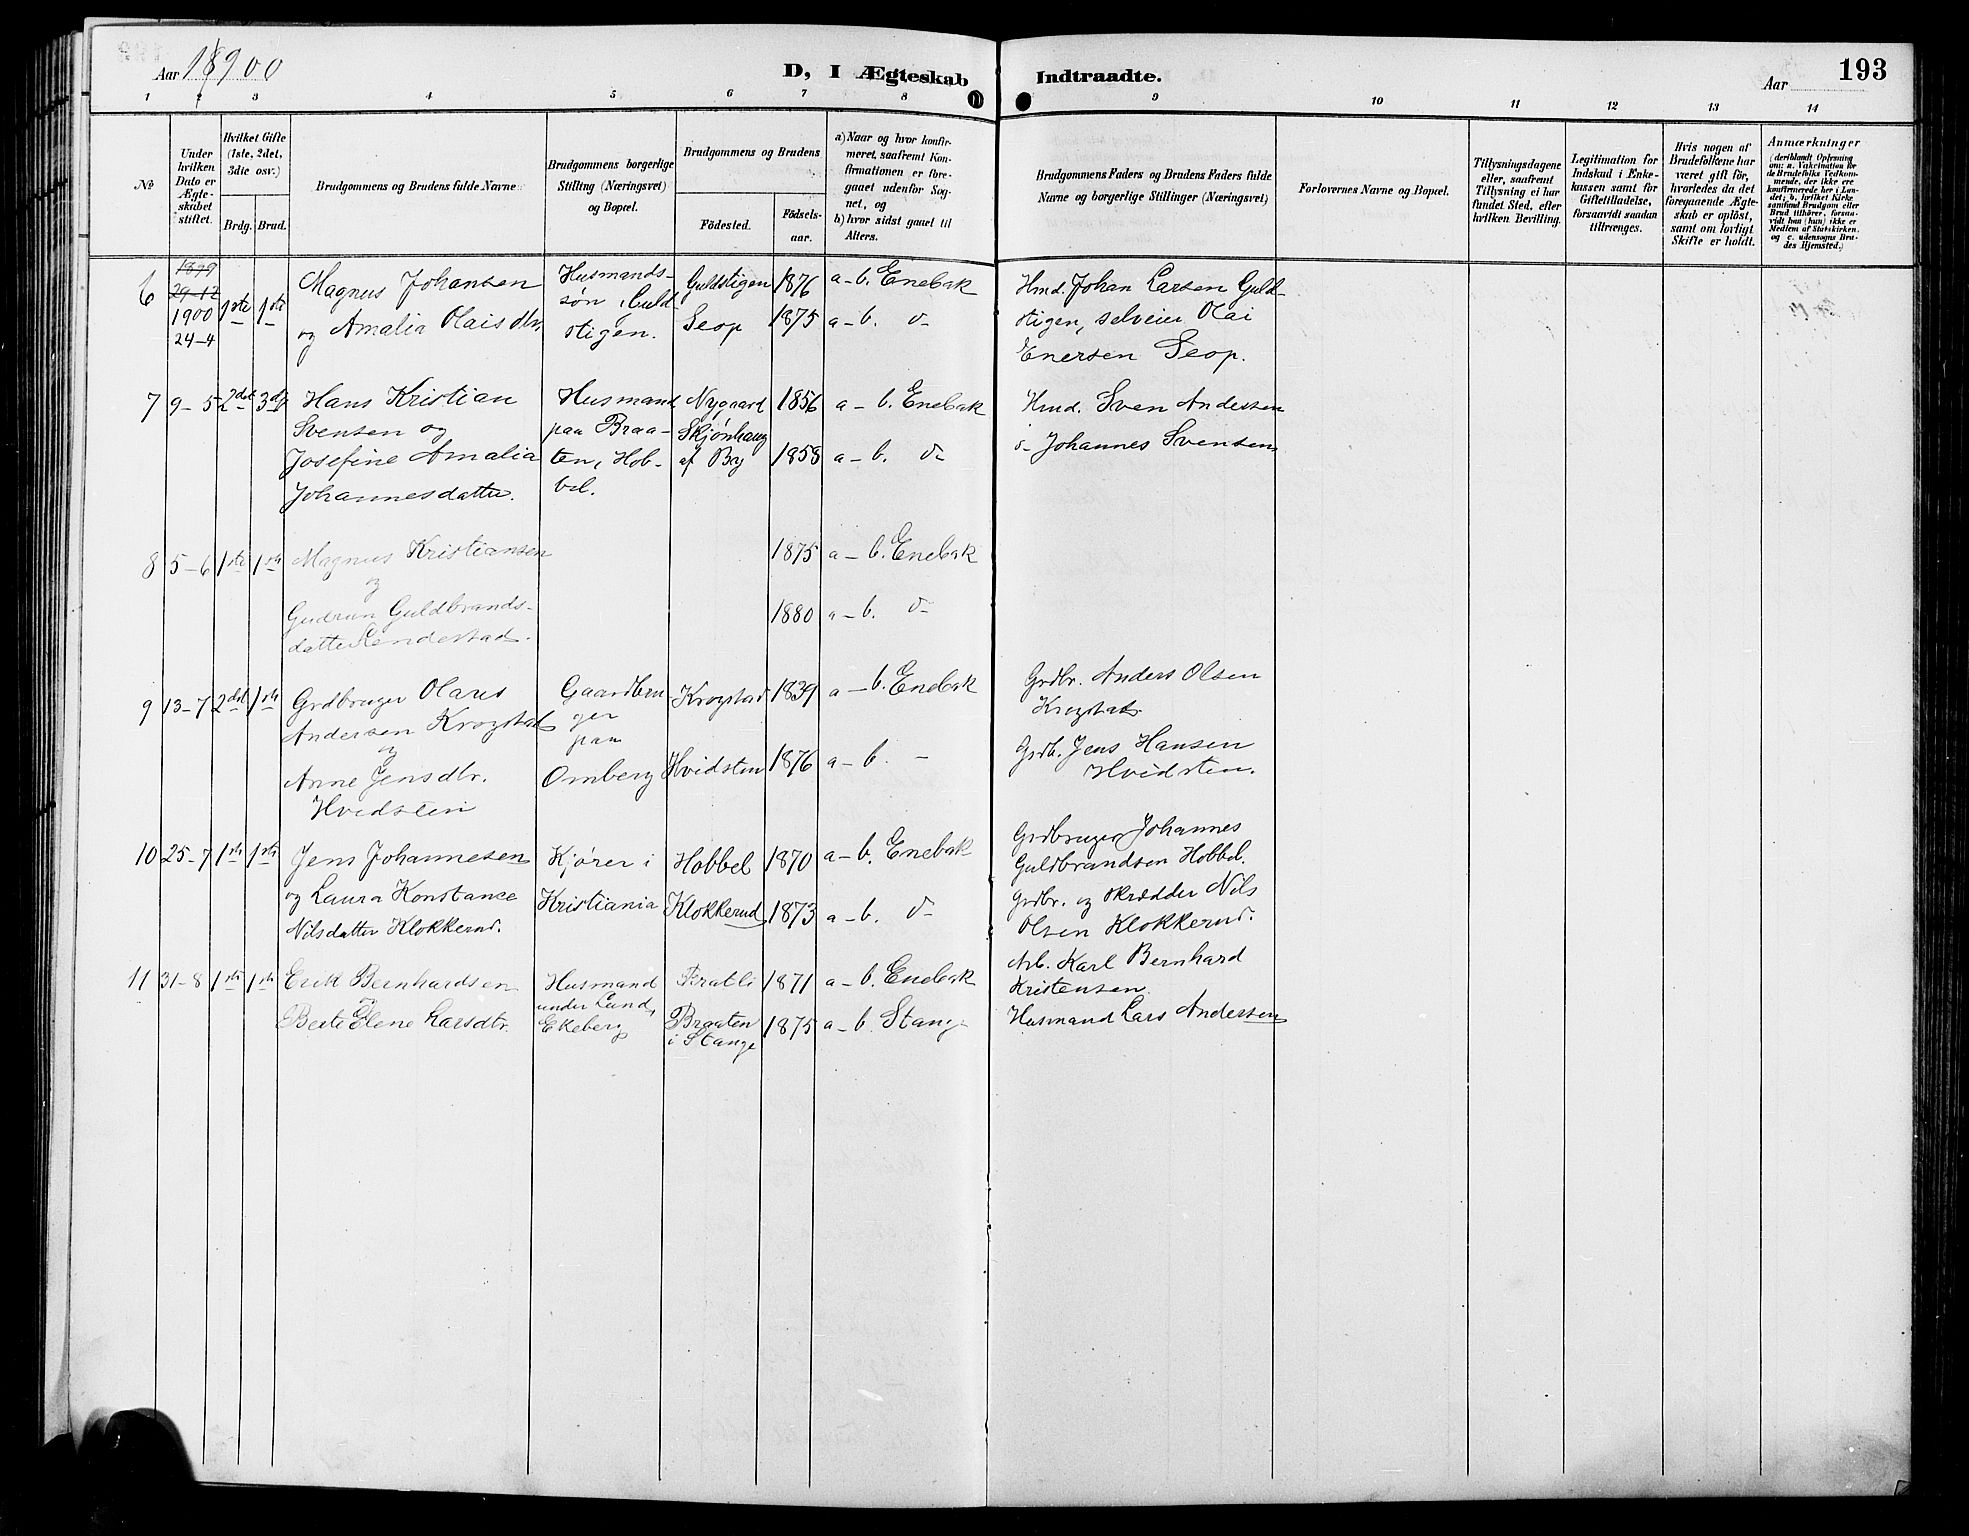 Aar 1900
D, I Ægteskab Indtraadte.
Aar
193
1 2 3 4 5 6 7 8 9 10 11 12 13 14
No
Under hvilken Dato er Ægteskabet stiftet.
Hvilket Gifte (1ste, 2det, 3die osv.)
Brdg. Brud.
Brudgommens og Brudens fulde Navne
Brudgommens borgerlige Stilling (Næringsvei) og Bopæl.
Brudgommens og Brudens
Födested.
Födsels-aar.
a) Naar og hvor konfir-
meret, saafremt Kon-
firmationen er fore-
gaaet udenfor Sog-
net, og
b) hvor sidst gaaet til
Alters.
Brudgommens Faders og Brudens Faders fulde
Navne og borgerlige Stillinger (Næringsvei)
Forlovernes Navne og Bopæl.
Tillysningsdagene
eller, saafremt
Tillysning ei har
fundet Sted, efter
hvilken Bevilling.
Legitimation for
Indskud i Ænke-
kassen samt for
Giftetilladelse,
forsaavidt saadan
tiltrænges.
Hvis nogen af
Brudefolkene har
været gift för,
hvorledes da det
foregaaende Ægte-
skab er oplöst,
samt om lovligt
Skifte er holdt.
Anmærkninger
(deriblandt Oplysning
om: a. Vakcination for
de Brudefolks Vedkom-
mende, der ikke ere
konfirmerede her i Lan-
det; b. hvilket Kirke-
samfund Brudgom eller
Brud tilhörer, forsaa-
vidt han (hun) ikke er
Medlem af Statskirken,
og c. udensogns Bru-
des Hjemsted.)
6 1899 29-12 1900 24-4 1ste 1ste
Magnus Johansen
og Amalia Olaisdtr.
Husmands-
søn i Guld-
stigen.
Guldstigen 1876 a-b. Enebak
Seop 1875 a-b. d-
Hmd. Johan Larsen Guld-
stigen, selveier Olai
Enersen Seop.
7 9-5 2det 3di
Hans Kristian
Svensen og
Josefine Amalia
Johannesdatter.
Husmand
paa Braa-
ten, Hob-
bel.
Nygaard 1856 a-b. Enebak
Skjønhaug
af By 1858 a-b. d-
Hmd. Sven Andersen
d- Johannes Svensen
8 5-6 1ste 1ste
Magnus Kristiansen
og
Gudrun Guldbrands-
datter Lendestad.
1875 a-b. Enebak
1880 a-b. d-
9 13-7 2det 1ste
Grdbruger Olaus
Andersen Krogstad
og
Anne Jensdtr.
Hvidsten
Gaardbru
ger
paa
Omberg
Krogstad 1839 a-b. Enebak
Hvidsten 1876 a-b. -
Grdbr. Anders Olsen
Krogstad.
Grdb. Jens Hansen
Hvidsten.
10 25-7 1ste 1ste
Jens Johannesen
og Laura Konstance
Nilsdatter Klokkerud.
Kjører i
Kristiania
Hobbel 1870 a-b. Enebak
Klokkerud 1873 a-b. d-
Grdbruger Johannes
Guldbrandsen Hobbel.
Grdbr. og skrædder Nils
Olsen Klokkerud.
11 31-8 1ste 1ste
Erik Bernhardsen
og
Berte Elene Larsdtr.
Husmand
under Lund,
Ekeberg
Bratli 1871 a-b. Enebak
Braaten
i Stange 1875 a-b. Stange
Arb. Karl Bernhard
Kristensen.
Husmand Lars Andersen